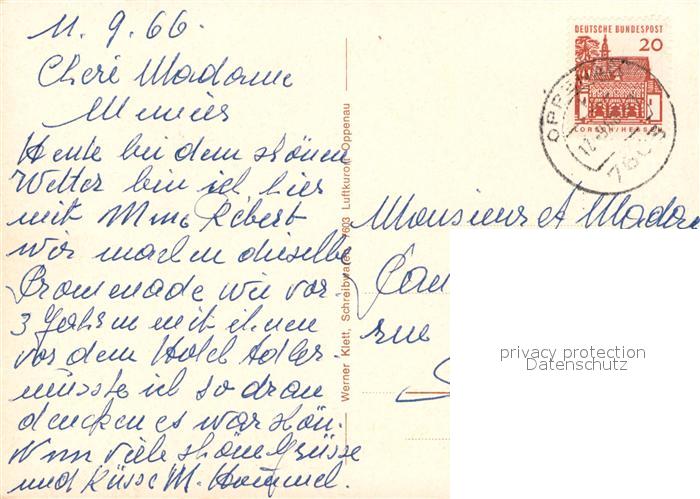 11. 9. 66.
Cheré Madame
Heute bei dem schönen
Wetter bin ich hier
mit Mme Ribert
wir machen dieselbe
Promenade wie vor
3 Jahren mit ihnen
vor dem Hotel Adler
müsste ich so dran
dencken es war schön.
Nun viele schöne Grüsse
und Küsse M. Hommel.
Werner Klett, Schreibwaren, 7603 Luftkurort Oppenau
DEUTSCHE BUNDESPOST
20
LORSCH/HESSEN
OPPENAU
7603
Monsieur et Madam
rue
privacy protection
Datenschutz